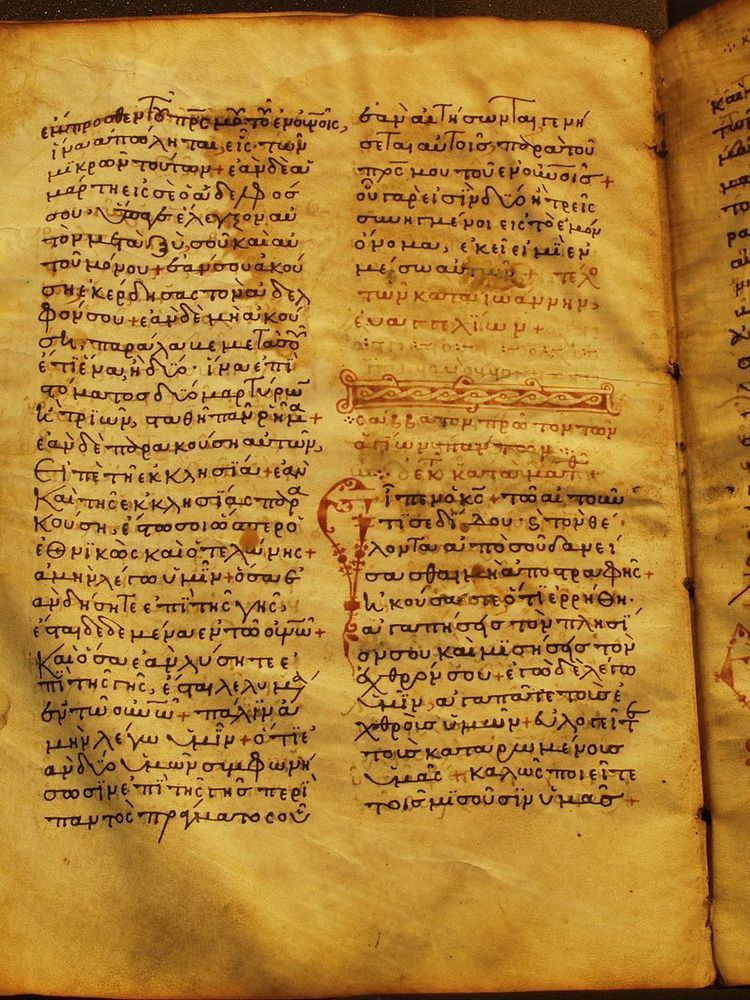 ἔμπροσθεν τοῦ πρς μου τοῦ ἐν οὐνοῖς,
ἵνα ἀπόληται, εἷς τῶν
μικρῶν τούτων + ἐὰν δὲ ἁ
μάρτη εἰς σὲ ὁ ἀδελφός
σου· ὕπαγε ἔλεγξον αὐ
τὸν μεταξὺ, σοῦ καὶ αὐ
τοῦ μόνου + ἐάν σου ἀκού
ση ἐκέρδησας τὸν ἀδελ
φόν σου + ἐὰν δὲ μὴ ἀκού
ση, παράλαβε μετὰ σοῦ
ἔτι ἕνα, ἢ δύο· ἵνα ἐπὶ
στόματος δύο μαρτύρων
ἢ τριῶν, σταθῆ πᾶν ρῆμα +
ἐὰν δὲ παρακούση αὐτῶν,
εἰπὲ τῆ ἐκκλησία + ἐὰν
καὶ τῆς ἐκκλησίας παρα
κούση, ἔστω σοι ὥσπερ ὁ
ἐθνικὸς καὶ ὁ τελώνης +
ἀμὴν λέγω ὑμῖν + ὅσα ἐ
ὰν δήσητε ἐπὶ τῆς γῆς,
ἔσται δεδεμένα ἐν τῶ οὐνῶ +
καὶ ὅσα ἐὰν λύσητε ἐ
πὶ τῆς γῆς, ἔσται λελυμένα
ἐν τῶ οὐνῶ + πάλιν ἀ
μὴν λέγω ὑμῖν + ὅτι ἐ
ὰν δύο ὑμῶν συμφωνή
σωσιν ἐπὶ τῆς γῆς περὶ
παντὸς πράγματος οὗ
ἐὰν αἰτήσωνται, γενή
σεται αὐτοῖς, παρὰ τοῦ
πρς μου τοῦ ἐν οὐνοῖς +
οὗ γάρ εἰσιν δύο ἢ τρεῖς
συνηγμένοι εἰς τὸ ἐμὸν
ὄνομα, ἐκεῖ εἰμὶ ἐν
μέσω αὐτῶν + τέλο
τῶν κατὰ ἰωάννην,
εὐαγγελίων +
σαββάτον πρῶτον τῶν
ἁγίων
ἐκ κατὰ ματ +
Εἶπεν ὁ κς + τῶ αἰτοῦν
τί σε δίδου· καὶ τὸν θέ
λοντα ἀπὸ σοῦ δανεί
σασθαι μὴ ἀποστραφῆς +
ἠκούσατε ὅτι ἐρρήθη·
ἀγαπήσεις τὸν πλησί
ον σου καὶ μισήσεις τὸν
ἐχθρόν σου + ἐγὼ δὲ λέγω
ὑμῖν, ἀγαπᾶτε τοὺς ἐ
χθροὺς ὑμῶν + εὐλογεῖτε
τοὺς καταρωμένους
ὑμᾶς + καλῶς ποιεῖτε
τοῖς μισοῦσιν ὑμᾶς +